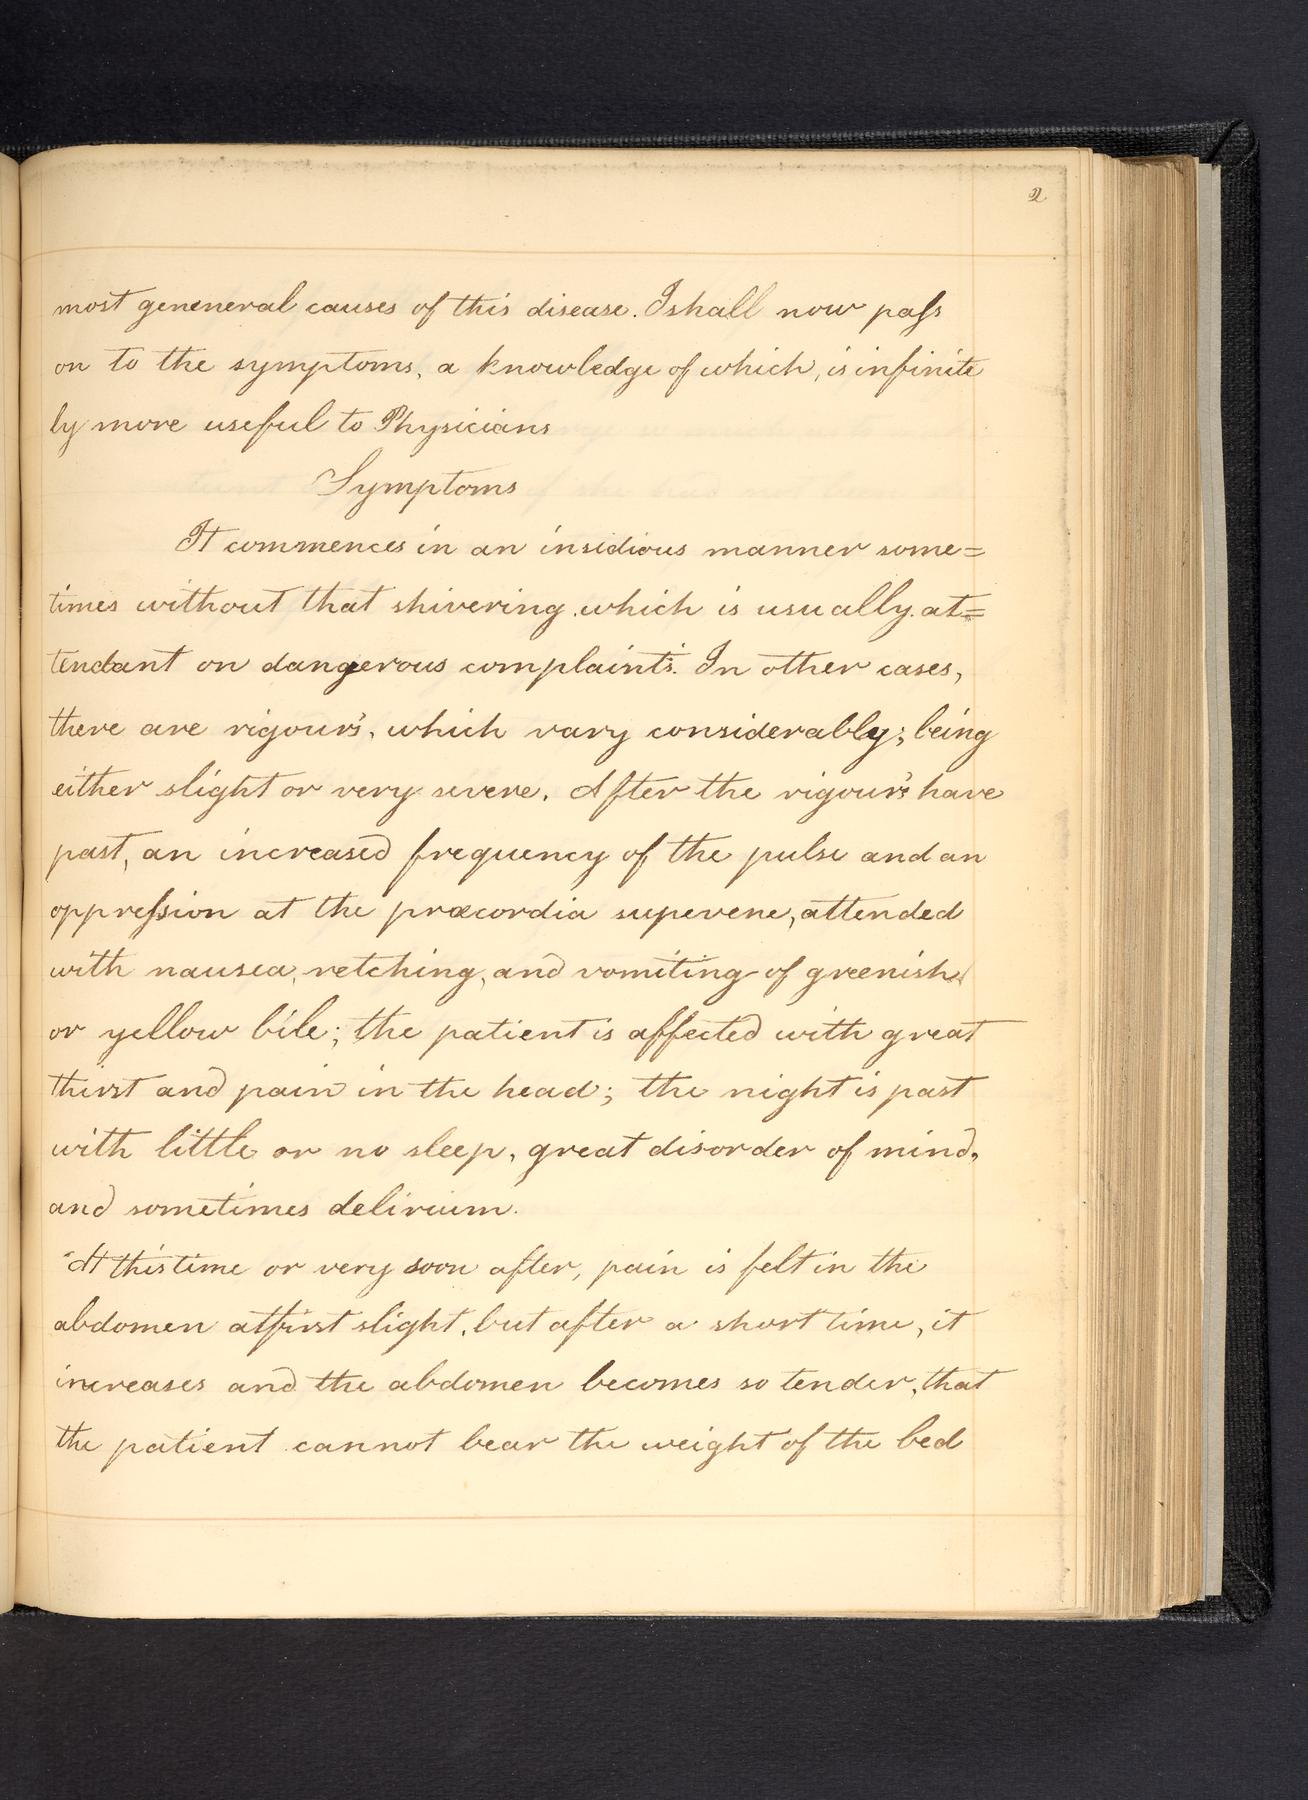 2
most geneneral causes of this disease. I shall now pass
on to the symptoms, a knowledge of which, is infinite
ly more useful to Physicians
Symptoms
It commences in an insidious manner some=
times without that shivering which is usually at=
tendant on dangerous complaint's. In other cases,
there are rigour's, which vary considerably; being
either slight or very severe. After the rigour's have
past, an increased frequency of the pulse and an
oppression at the præcordia supevene, attended
with nausea, retching, and vomiting of greenish
or yellow bile; the patient is affected with great
thirst and pain in the head; the night is past
with little or no sleep, great disorder of mind,
and sometimes delirium.
At this time or very soon after, pain is felt in the
abdomen at first slight, but after a short time, it
increases and the abdomen becomes so tender, that
the patient cannot bear the weight of the bed